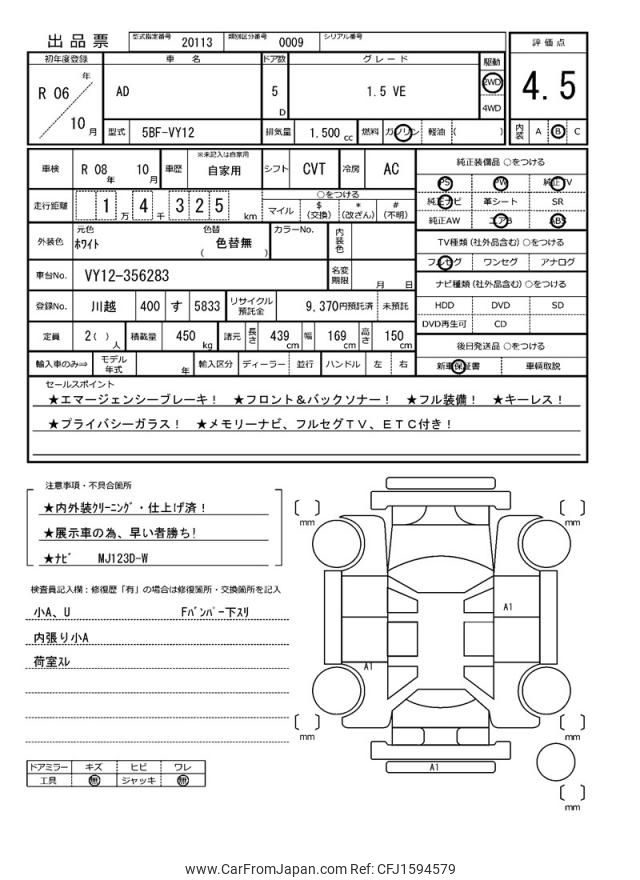 出品票 型式指定番号 20113 類別区分番号 0009 シリアル番号
評価点
4.5
内装 A B C
初年度登録 車名 ドア数 グレード 駆動
R 06 年 10 月
AD
5 D
1.5 VE
2WD
4WD
型式 5BF-VY12 排気量 1.500 cc 燃料 ガソリン 軽油 ( )
車検 R 08 年 10 月 車歴 ※未記入は自家用 自家用 シフト CVT 冷房 AC
走行距離 1 万 4 千 3 2 5 km
○をつける
マイル $ (交換) * (改ざん) # (不明)
外装色 元色 ホワイト 色替 色替無 ( ) カラーNo. 内装色
車台No. VY12-356283 名変期限 月 日
登録No. 川越 400 す 5833 リサイクル預託金 9,370円預託済 未預託
定員 2( ) 人 積載量 450 kg 諸元 長さ 439 cm 幅 169 cm 高さ 150 cm
輸入車のみ⇒ モデル年式 年 輸入区分 ディーラー 並行 ハンドル 左 右
純正装備品 ○をつける
PS PW 純正TV
純正ナビ 革シート SR
純正AW エアB ABS
TV種類 (社外品含む) ○をつける
フルセグ ワンセグ アナログ
ナビ種類 (社外品含む) ○をつける
HDD DVD SD
DVD再生可 CD
後日発送品 ○をつける
新車保証書 車輌取説
セールスポイント
★エマージェンシーブレーキ! ★フロント&バックソナー! ★フル装備! ★キーレス!
★プライバシーガラス! ★メモリーナビ、フルセグTV、ETC付き!
注意事項・不具合箇所
★内外装クリーニング・仕上げ済!
★展示車の為、早い者勝ち!
★ナビ MJ123D-W
検査員記入欄:修復歴「有」の場合は修復箇所・交換箇所を記入
小A、U Fバンパー下スリ
内張り小A
荷室スレ
ドアミラー キズ ヒビ ワレ
工具 無 ジャッキ 無
mm
mm
A1
A1
mm
mm
A1
mm
www.CarFromJapan.com Ref: CFJ1594579